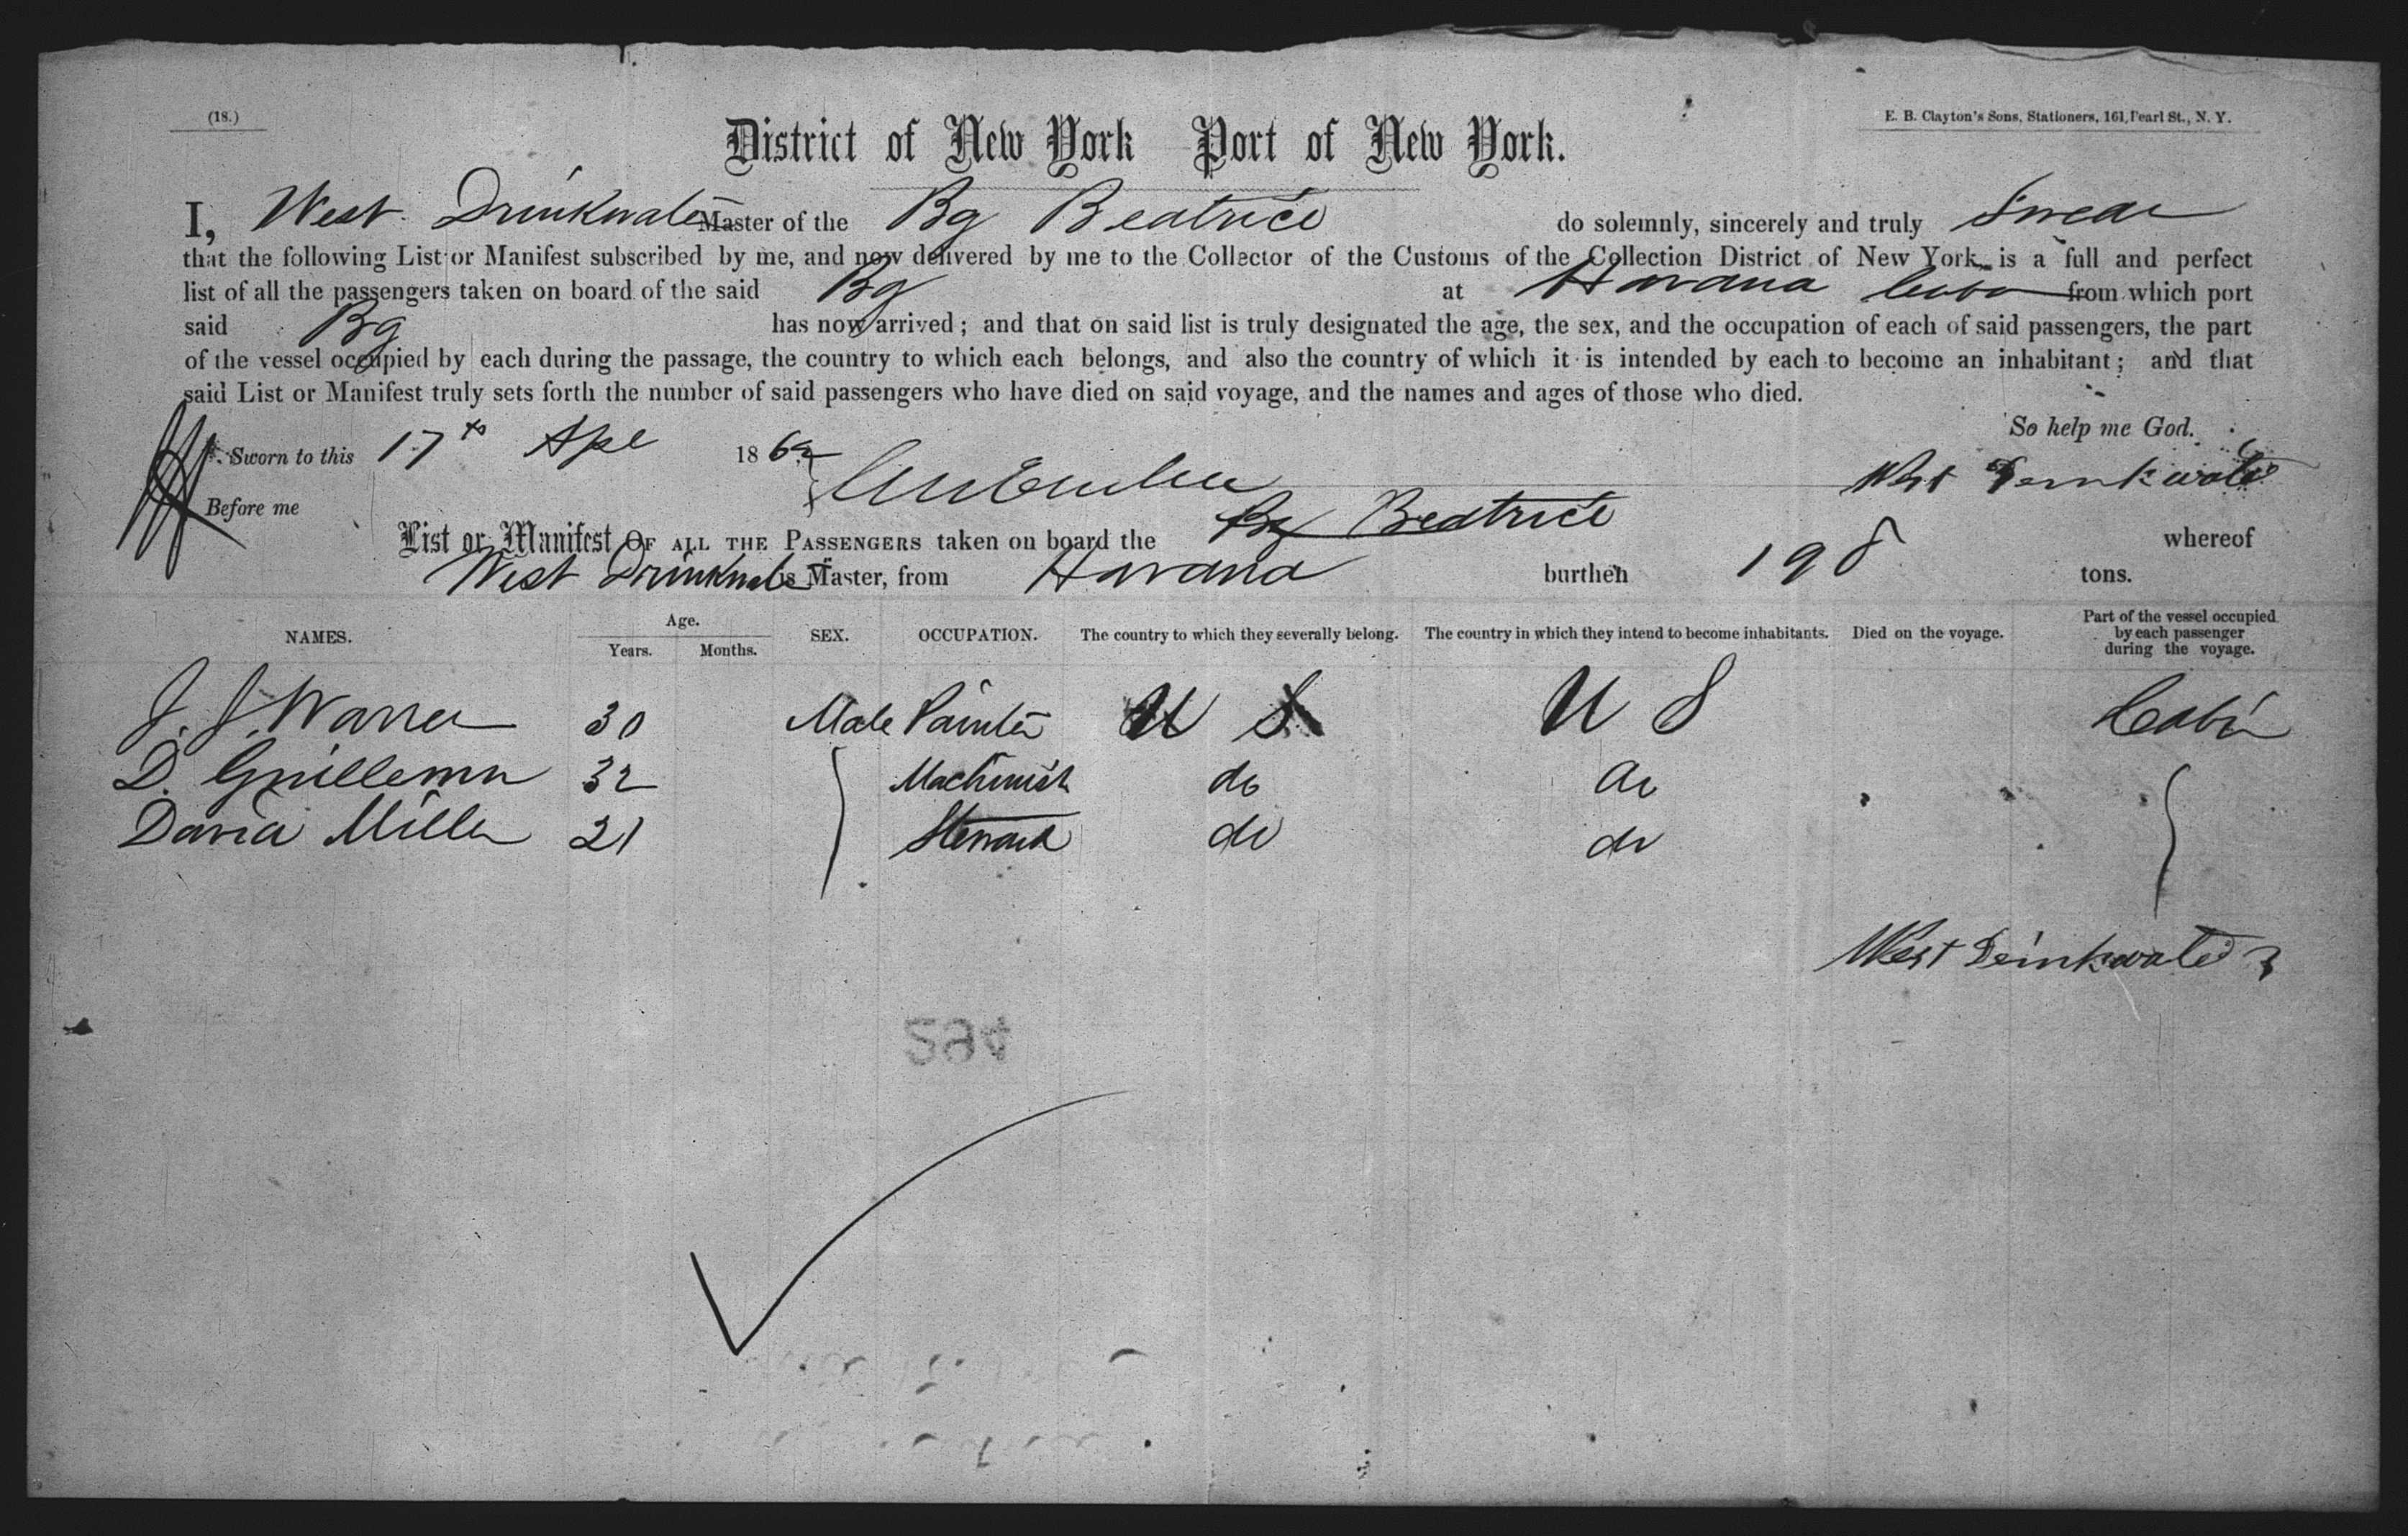 (18.)
E. B. Clayton's Sons, Stationers, 161, Pearl St., N. Y.
District of New York Port of New York.
I, West Drinkwater Master of the Bg Beatrice do solemnly, sincerely and truly Swear
that the following List or Manifest subscribed by me, and now delivered by me to the Collector of the Customs of the Collection District of New York, is a full and perfect
list of all the passengers taken on board of the said Bg at Havana Cuba from which port
said Bg has now arrived; and that on said list is truly designated the age, the sex, and the occupation of each of said passengers, the part
of the vessel occupied by each during the passage, the country to which each belongs, and also the country of which it is intended by each to become an inhabitant; and that
said List or Manifest truly sets forth the number of said passengers who have died on said voyage, and the names and ages of those who died.
So help me God.
Sworn to this 17th Apl 186
West Drinkwater
Before me
List or Manifest OF ALL THE PASSENGERS taken on board the Bg Beatrice whereof
West Drinkwater is Master, from Havana burthen 198 tons.
NAMES. Age. Years. Months. SEX. OCCUPATION. The country to which they severally belong. The country in which they intend to become inhabitants. Died on the voyage. Part of the vessel occupied by each passenger during the voyage.
J. J. Warren 30 Male Painter U S U S Cabin
D. Guillemin 32 Machinist do do
David Miller 21 Steward do do
West Drinkwater
294